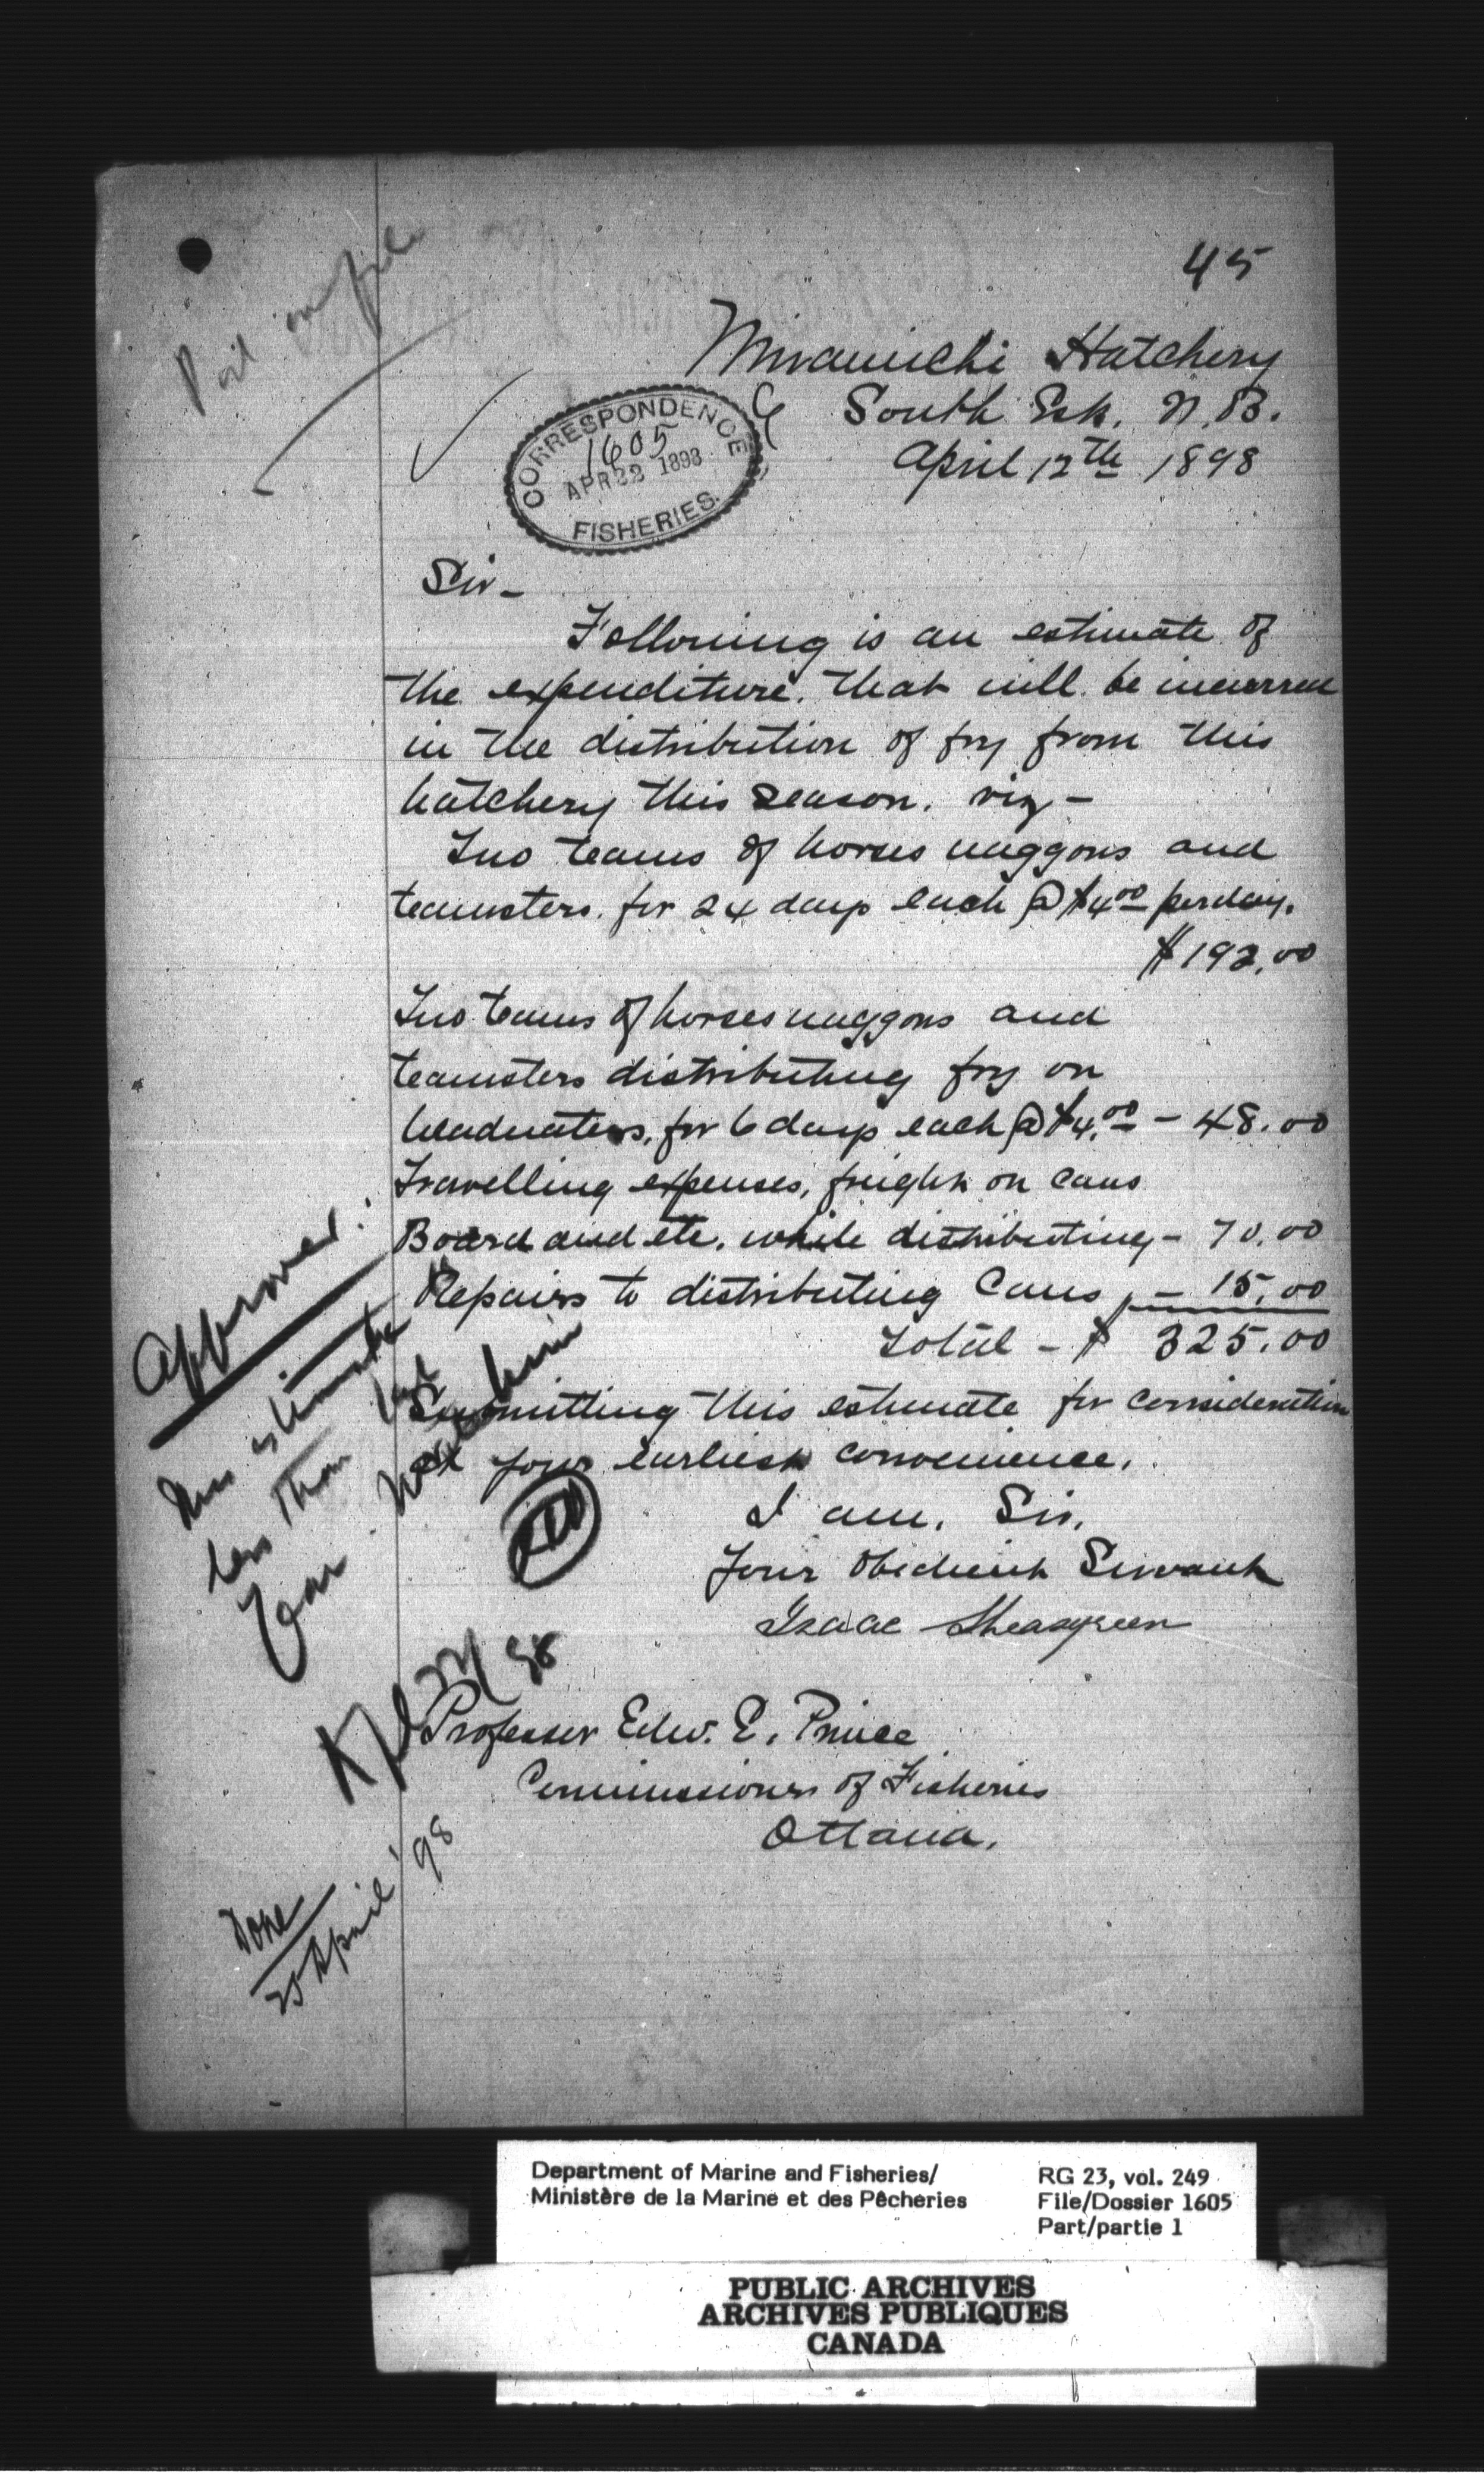 45
on file
Miramichi Hatchery
South Esk. N.B.
April 12th 1898
CORRESPONDENCE
1605
APR 22 1898
FISHERIES.
Sir-
Following is an estimate of
the expenditure. that will be incurred
in the distribution of fry from this
hatchery this season. viz-
Two teams of horses waggons and
teamsters. for 24 days each @ $4.00 per day.
$192.00
Two teams of horses waggons and
teamsters distributing fry on
headwaters, for 6 days each @ $4.00 - 48.00
Travelling expenses, freight on cans
Board and etc. while distributing - 70.00
Repairs to distributing Cans - 15.00
Total - $ 325.00
Submitting this estimate for consideration
at your earliest convenience.
I am, Sir,
Your Obedient Servant
Isaac Sheasgreen
Professor Edw. E. Prince
Commissioner of Fisheries
Ottawa.
Approved.
This estimate is
less than last
Year
98
Done
25 April '98
Department of Marine and Fisheries/
Ministère de la Marine et des Pêcheries
RG 23, vol. 249
File/Dossier 1605
Part/partie 1
PUBLIC ARCHIVES
ARCHIVES PUBLIQUES
CANADA